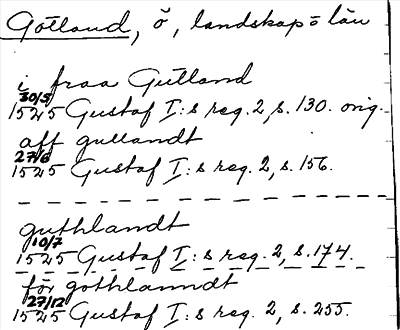 Gotland, ö, landskap o län
i fraa Gutland
30/5
1525 Gustaf I:s reg. 2, s. 130. orig.
aff gullandt
27/6
1525 Gustaf I:s reg. 2, s. 156.
guthlandt
10/7
1525 Gustaf I:s reg. 2, s. 174.
för gothlanndt
27/12
1525 Gustaf I:s reg. 2, s. 255.